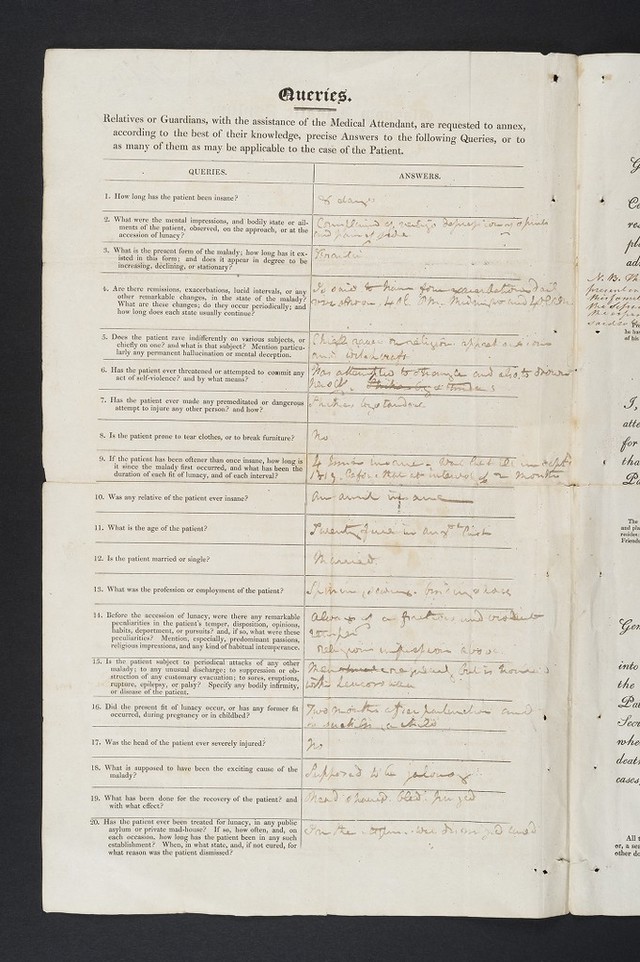 Queries.
Relatives or Guardians, with the assistance of the Medical Attendant, are requested to annex,
according to the best of their knowledge, precise Answers to the following Queries, or to
as many of them as may be applicable to the case of the Patient.
QUERIES.
ANSWERS.
1. How long has the patient been insane?
8 days
2. What were the mental impressions, and bodily state or ail-
ments of the patient, observed, on the approach, or at the
accession of lunacy?
Complained of vertigo depression of spirits
and pain of side
3. What is the present form of the malady; how long has it ex-
isted in this form; and does it appear in degree to be
increasing, declining, or stationary?
4. Are there remissions, exacerbations, lucid intervals, or any
other remarkable changes, in the state of the malady?
What are these changes; do they occur periodically; and
how long does each state usually continue?
Is said to have four exacerbations daily
4 P.M. Midnight and 4 A.M.
5. Does the patient rave indifferently on various subjects, or
chiefly on one? and what is that subject? Mention particu-
larly any permanent hallucination or mental deception.
Chiefly raves on religion apparitions
and witchcraft
6. Has the patient ever threatened or attempted to commit any
act of self-violence? and by what means?
Has attempted to strangle and also to drown
herself.
7. Has the patient ever made any premeditated or dangerous
attempt to injure any other person? and how?
Strikes bystanders
8. Is the patient prone to tear clothes, or to break furniture?
No
9. If the patient has been oftener than once insane, how long is
it since the malady first occurred, and what has been the
duration of each fit of lunacy, and of each interval?
4 times insane. in Septr
1819. at intervals of 2 months
10. Was any relative of the patient ever insane?
An aunt insane
11. What is the age of the patient?
Twenty nine in Augst last
12. Is the patient married or single?
Married
13. What was the profession or employment of the patient?
14. Before the accession of lunacy, were there any remarkable
peculiarities in the patient's temper, disposition, opinions,
habits, deportment, or pursuits? and, if so, what were these
peculiarities? Mention, especially, predominant passions,
religious impressions, and any kind of habitual intemperance.
Always of a fractious and violent
temper
religious impressions above
15. Is the patient subject to periodical attacks of any other
malady; to any unusual discharge; to suppression or ob-
struction of any customary evacuation; to sores, eruptions,
rupture, epilepsy, or palsy? Specify any bodily infirmity,
or disease of the patient.
regular, but is troubled
with Leucorrhoea
16. Did the present fit of lunacy occur, or has any former fit
occurred, during pregnancy or in childbed?
Two months after parturition and
is suckling a child
17. Was the head of the patient ever severely injured?
No
18. What is supposed to have been the exciting cause of the
malady?
Supposed to be jealousy
19. What has been done for the recovery of the patient? and
with what effect?
Head shaved. bled. purged
20. Has the patient ever been treated for lunacy, in any public
asylum or private mad-house? If so, how often, and, on
each occasion, how long has the patient been in any such
establishment? When, in what state, and, if not cured, for
what reason was the patient dismissed?
In the Asylum. was dismissed cured